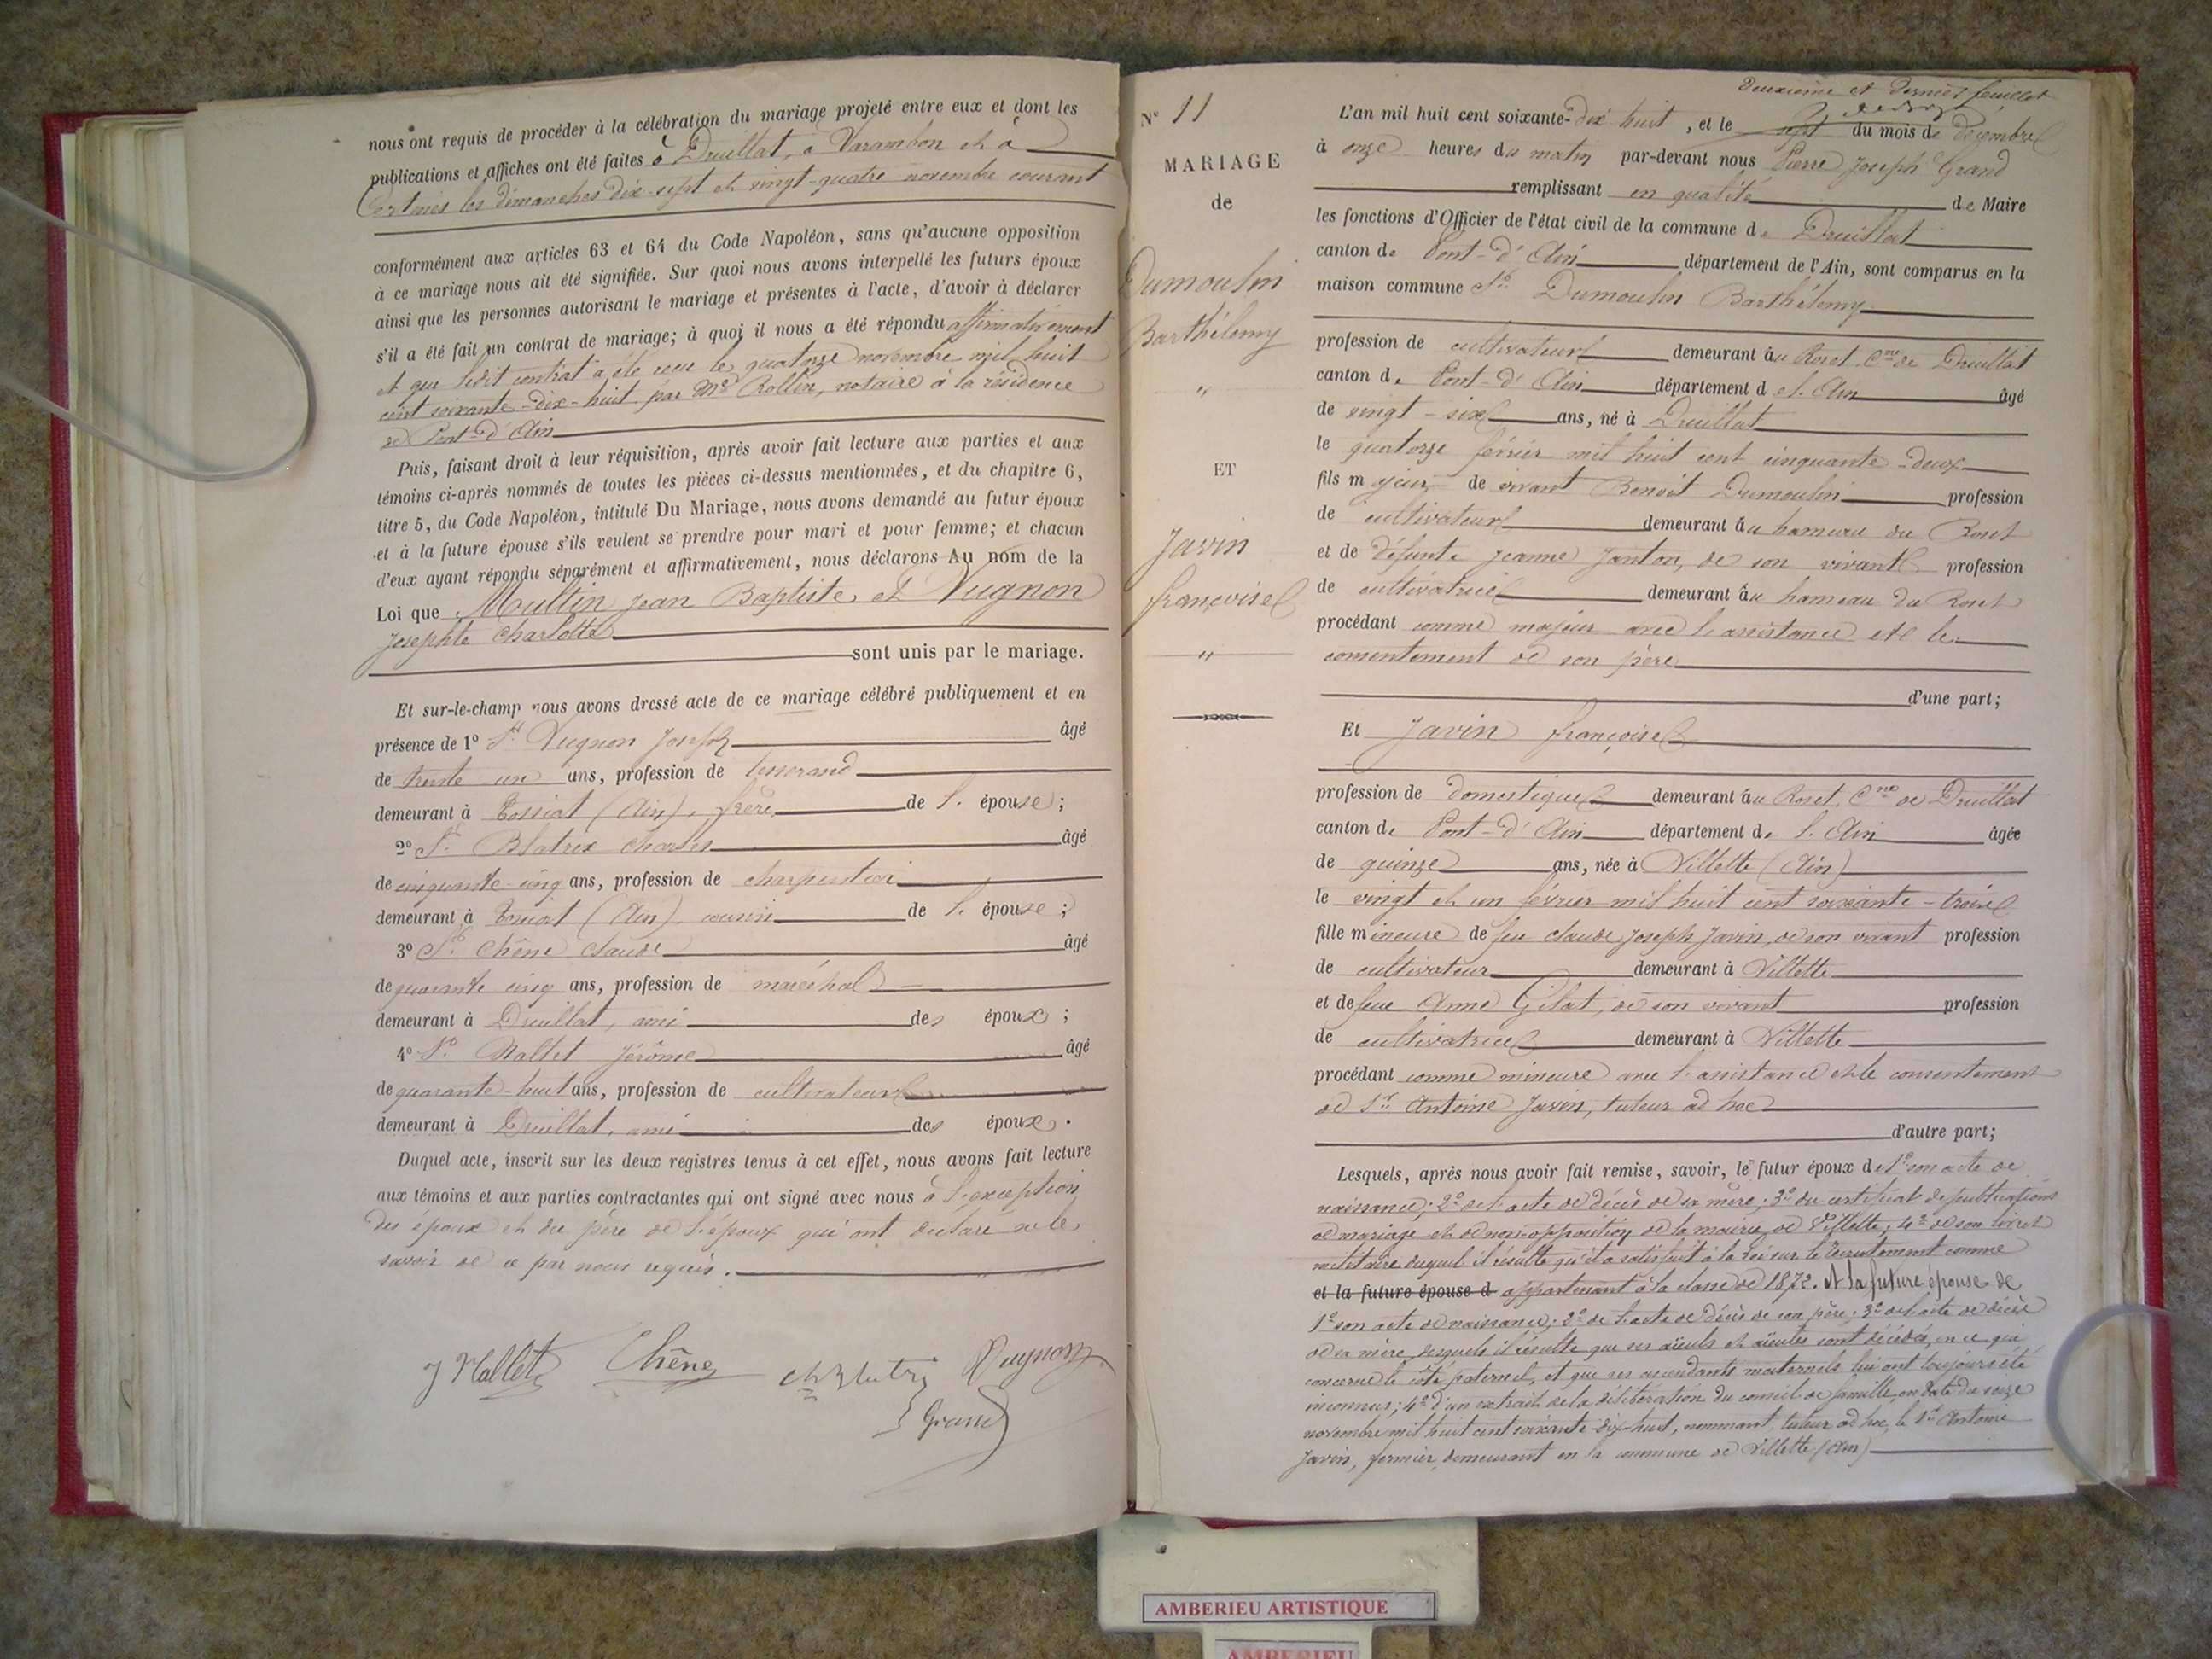 nous ont requis de procéder à la célébration du mariage projeté entre eux et dont les
publications et affiches ont été faites à Druillat, à Varambon et à
Certines les dimanches dix-sept et vingt-quatre novembre courant
conformément aux articles 63 et 64 du Code Napoléon, sans qu'aucune opposition
à ce mariage nous ait été signifiée. Sur quoi nous avons interpellé les futurs époux
ainsi que les personnes autorisant le mariage et présentes à l'acte, d'avoir à déclarer
s'il a été fait un contrat de mariage; à quoi il nous a été répondu affirmativement
et que ledit contrat a été reçu le quatorze novembre mil huit
cent soixante-dix-huit par Me Rollin, notaire à la résidence
de Pont-d'Ain
Puis, faisant droit à leur réquisition, après avoir fait lecture aux parties et aux
témoins ci-après nommés de toutes les pièces ci-dessus mentionnées, et du chapitre 6,
titre 5, du Code Napoléon, intitulé Du Mariage, nous avons demandé au futur époux
et à la future épouse s'ils veulent se prendre pour mari et pour femme; et chacun
d'eux ayant répondu séparément et affirmativement, nous déclarons Au nom de la
Loi que Moultin Jean Baptiste et Vugnon
Josephte Charlotte
sont unis par le mariage.
Et sur-le-champ nous avons dressé acte de ce mariage célébré publiquement et en
présence de 1º Sr Vugnon Joseph âgé
de trente un ans, profession de tisserand
demeurant à Tossiat (Ain), frère de l'épouse;
2º Sr Blatrix Charles âgé
de cinquante-cinq ans, profession de charpentier
demeurant à Tossiat (Ain) cousin de l'épouse;
3º Sr Chêne Claude âgé
de quarante cinq ans, profession de maréchal
demeurant à Druillat, ami des époux;
4º Sr Mallet Jérôme âgé
de quarante-huit ans, profession de cultivateur
demeurant à Druillat, ami des époux.
Duquel acte, inscrit sur les deux registres tenus à cet effet, nous avons fait lecture
aux témoins et aux parties contractantes qui ont signé avec nous à l'exception
des époux et du père de l'époux qui ont déclaré ne le
savoir de ce par nous requis.
J Mallet Chêne ch Blatrix Vugnon
Grand
Deuxième et dernier feuillet
Nº 11
MARIAGE
de
Dumoulin
Barthélemy
"
ET
Javin
françoise
"
L'an mil huit cent soixante-dix huit, et le sept du mois de décembre
à onze heures du matin par-devant nous Pierre Joseph Grand
remplissant en qualité de Maire
les fonctions d'Officier de l'état civil de la commune de Druillat
canton de Pont-d'Ain département de l'Ain, sont comparus en la
maison commune Sr Dumoulin Barthélemy
profession de cultivateur demeurant au Roset Cne de Druillat
canton de Pont-d'Ain département de l'Ain âgé
de vingt-six ans, né à Druillat
le quatorze février mil huit cent cinquante-deux
fils majeur de vivant Benoit Dumoulin profession
de cultivateur demeurant au hameau du Roset
et de défunte Jeanne Janton, de son vivant profession
de cultivatrice demeurant au hameau du Roset
procédant comme majeur avec l'assistance et le
consentement de son père
d'une part;
Et Javin françoise
profession de domestique demeurant au Roset, Cne de Druillat
canton de Pont-d'Ain département de l'Ain âgée
de quinze ans, née à Villette (Ain)
le vingt et un février mil huit cent soixante-trois
fille mineure de feu Claude Joseph Javin, de son vivant profession
de cultivateur demeurant à Villette
et de feue Anne Gilat, de son vivant profession
de cultivatrice demeurant à Villette
procédant comme mineure avec l'assistance et le consentement
de Sr Antoine Javin, tuteur ad hoc
d'autre part;
Lesquels, après nous avoir fait remise, savoir, le futur époux de 1º son acte de
naissance; 2º de l'acte de décès de sa mère; 3º du certificat de publications
de mariage et de non opposition de la mairie de Villette; 4º de son livret
militaire duquel il résulte qu'il a satisfait à la loi sur le recrutement comme
et la future épouse d appartenant à la classe de 1872. Et la future épouse de
1º son acte de naissance; 2º de l'acte de décès de son père; 3º de l'acte de décès
de sa mère, desquels il résulte que ses aïeuls et aïeules sont décédés, en ce qui
concerne le côté paternel, et que ses ascendants maternels lui ont toujours été
inconnus; 4º d'un extrait de la délibération du conseil de famille, en date du seize
novembre mil huit cent soixante-dix-huit, nommant, tuteur ad hoc, le Sr Antoine
Javin, fermier, demeurant en la commune de Villette (Ain)
AMBERIEU ARTISTIQUE
AMBERIEU